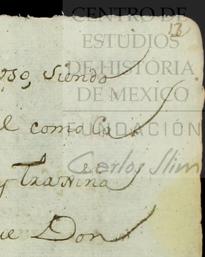 CENTRO DE
ESTUDIOS
DE HISTORIA
DE MEXICO
FUNDACIÓN
Carlos Slim
13
oso, siendo
l como la
y
e Don